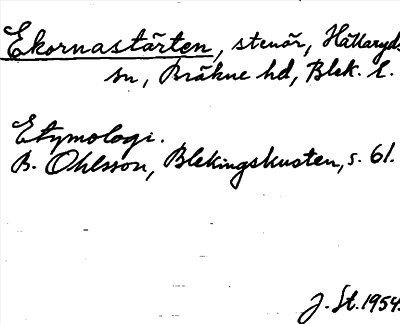 Ekornastärten, stenör, Hällaryds
sn, Bräkne hd, Blek. l.
Etymologi.
B. Ohlsson, Blekingskusten, s. 61.
J. St. 1954.